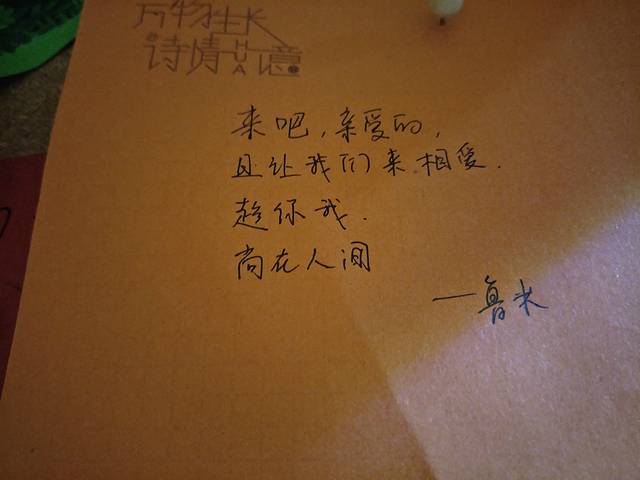 万物生长
诗情HUA意
来吧,亲爱的,
且让我们来相爱.
趁你我.
尚在人间
—鲁米